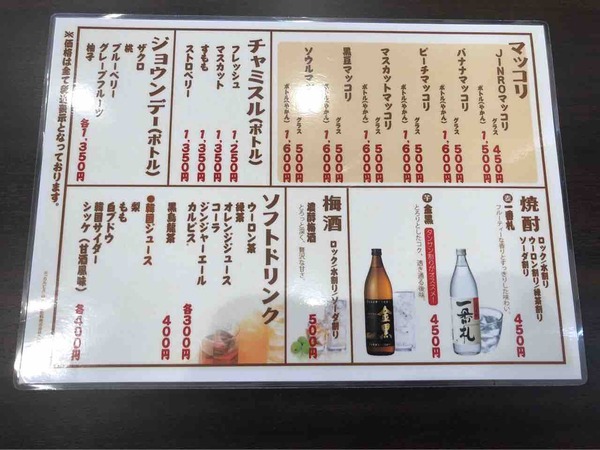 マッコリ
JINROマッコリ
グラス 450円
ボトル(やかん) 1,500円
バナナマッコリ
グラス 500円
ボトル(やかん) 1,600円
ピーチマッコリ
グラス 500円
ボトル(やかん) 1,600円
マスカットマッコリ
グラス 500円
ボトル(やかん) 1,600円
黒豆マッコリ
グラス 500円
ボトル(やかん) 1,600円
ソウルマッコリ
グラス 500円
ボトル(やかん) 1,600円
チャミスル(ボトル)
フレッシュ 1,250円
マスカット 1,350円
すもも 1,350円
ストロベリー 1,350円
ジョウンデー(ボトル)
ザクロ
桃
ブルーベリー
グレープフルーツ
柚子
各1,350円
焼酎
ロック/水割り
ウーロン割り/緑茶割り
ソーダ割り
一番札
フルーティーな香りとすっきりした味わい。
450円
一番札
芋 金黒
タンサン割りがオススメ!
とろりとしたコク、透き通る後味。
450円
金黒
梅酒
ロック/水割り/ソーダ割り
濃醇梅酒
とろっと深く、贅沢な甘さ。
500円
ソフトドリンク
ウーロン茶
緑茶
オレンジジュース
コーラ
ジンジャーエール
カルピス
各300円
黒烏龍茶 400円
●韓国ジュース
梨
もも
白ブドウ
韓国サイダー
シッケ(甘酒風味)
各400円
※価格は全て税込表示となっております。